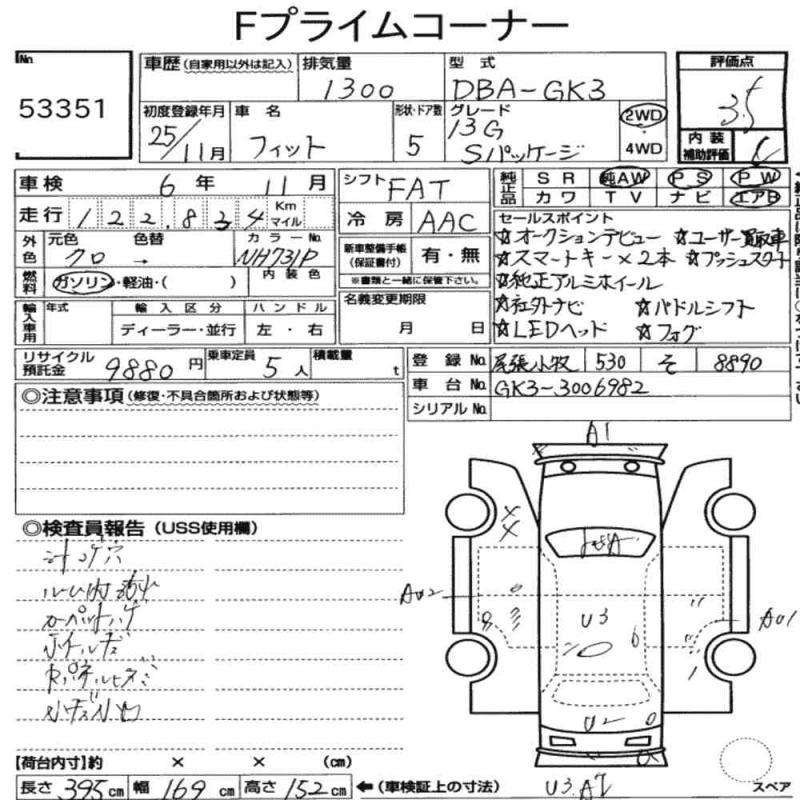 Fプライムコーナー
No.
53351
車歴 (自家用以外は記入)
排気量
1300
型式
DBA-GK3
評価点
3.5
初度登録年月
25/11月
車名
フィット
形状・ドア数
5
グレード
13G
Sパッケージ
2WD
・
4WD
内装
補助評価
C
車検
6年 11月
走行
122,834
Km
マイル
外色
元色
クロ
色替
→
カラーNo.
NH731P
燃料
ガソリン・軽油・( )
内装色
輸入車用
年式
輸入区分
ディーラー・並行
ハンドル
左・右
リサイクル
預託金
9880円
乗車定員
5人
積載量
t
シフト
FAT
冷房
AAC
新車整備手帳
(保証書付)
有・無
※書類と一緒に保管下さい。
名義変更期限
月 日
純正品
SR
純AW
PS
PW
カワ
TV
ナビ
エアB
セールスポイント
☆オークションデビュー ☆ユーザー買取車
☆スマートキー×2本 ☆プッシュスタート
☆純正アルミホイール
☆社外ナビ ☆パドルシフト
☆LEDヘッド ☆フォグ
登録No.
尾張小牧 530 そ 8890
車台No.
GK3-3006982
シリアルNo.
◎注意事項(修復・不具合箇所および状態等)
◎検査員報告(USS使用欄)
A1
AU2
U3
AU1
U2
U3.A2
【荷台内寸】約 × × (cm)
長さ 395cm 幅 169cm 高さ 152cm ←(車検証上の寸法)
スペア